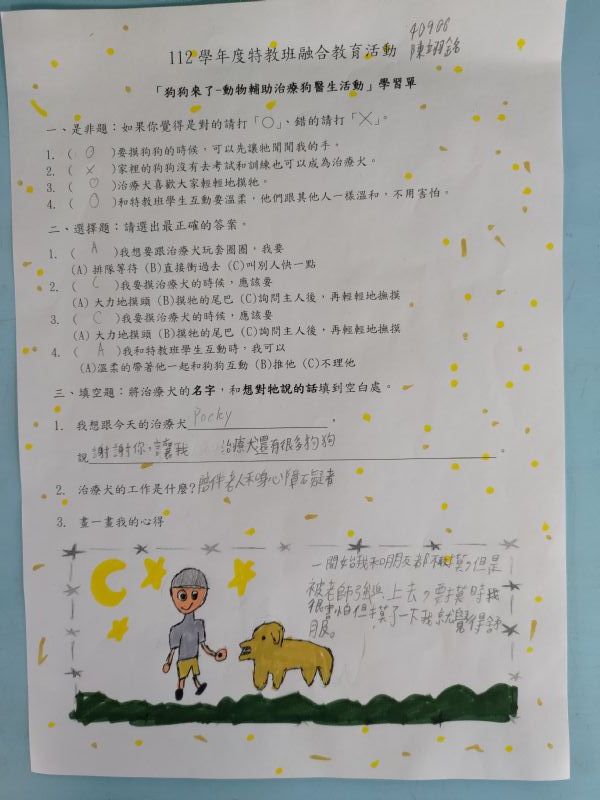 40908
112學年度特教班融合教育活動 陳翊銘
「狗狗來了-動物輔助治療狗醫生活動」學習單
一、是非題：如果你覺得是對的請打「○」、錯的請打「╳」。
1. ( O )要摸狗狗的時候，可以先讓牠聞聞我的手。
2. ( X )家裡的狗狗沒有去考試和訓練也可以成為治療犬。
3. ( O )治療犬喜歡大家輕輕地摸牠。
4. ( O )和特教班學生互動要溫柔，他們跟其他人一樣溫和，不用害怕。
二、選擇題：請選出最正確的答案。
1. ( A )我想要跟治療犬玩套圈圈，我要
(A)排隊等待 (B)直接衝過去 (C)叫別人快一點
2. ( C )我要摸治療犬的時候，應該要
(A)大力地摸頭 (B)摸牠的尾巴 (C)詢問主人後，再輕輕地撫摸
3. ( C )我要摸治療犬的時候，應該要
(A)大力地摸頭 (B)摸牠的尾巴 (C)詢問主人後，再輕輕地撫摸
4. ( A )我和特教班學生互動時，我可以
(A)溫柔的帶著他一起和狗狗互動 (B)推他 (C)不理他
三、填空題：將治療犬的名字，和想對牠說的話填到空白處。
1. 我想跟今天的治療犬 Pocky ，
說 謝謝你，讓我 治療犬還有很多狗狗 。
2. 治療犬的工作是什麼?陪伴老人和身心障礙者
3. 畫一畫我的心得
一開始我和朋友都不摸，但是
被老師強 上去，要摸時我
很害怕但摸了一下我就覺得舒
服。